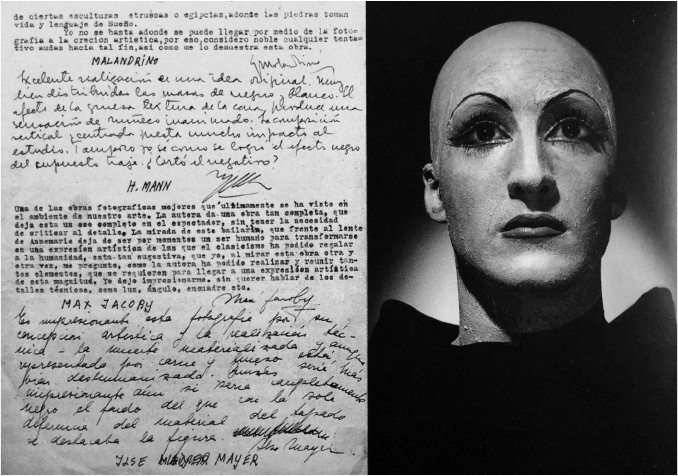 de ciertas esculturas etruscas o egipcias,adonde las piedras toman
vida y lenguaje de Sueño.
Yo no se hasta adonde se puede llegar por medio de la foto-
grafia a la crecion artistica,por eso,considero noble cualquier tentan
tivo audas hacia tal fin,asi como lo demuestra esta obra.
MALANDRINO
Excelente realización de una idea original. Muy
bien distribuidas las masas de negro y blanco. El
efecto de la gruesa textura de la cara, produce una
sensación de muñeco inanimado. La composición
vertical y centrada presta mucho impacto al
estudio. Tampoco yo sé como se logró el efecto negro
del supuesto traje. ¿Cortó el negativo?
H. MANN
Una de las obras fotograficas mejores que ultimamente se ha visto en
el ambiente de nuestro arte. La autora da una obra tan completa, que
deja esta un eco completo en el espectador, sin tener la necesidad
de criticar al detalle. La mirada de este bailarin, que frente al lente
de Annemarie deja de ser por momentos un ser humano para transformarse
en una expresión artistica de las que el clasismo ha podido regalar
a la humanidad, esta tan sugestiva, que yo, al mirar esta obra otra y
otra vez, me pregunto, como la autora ha podido realizar y reunir tan-
tos elementos, que se requieren para llegar a una expresión artistica
de esta magnitud. Yo dejo impresionarme, sin querer hablar de los de-
talles técnicos, como luz, ángulo, encuadre etc.
MAX JACOBY Max Jacoby.
Es impresionante esta fotografía por su
concepción artística y la realización téc-
nica - la muerte materializada y aunque
representada por carne y hueso está más
bien deshumanizada. Quizás sería más
impresionante aún si sería completamente
negro el fondo del que con la sola
diferencia del material del tapado
se destacaba la figura. Ilse Mayer.
ILSE MAYER